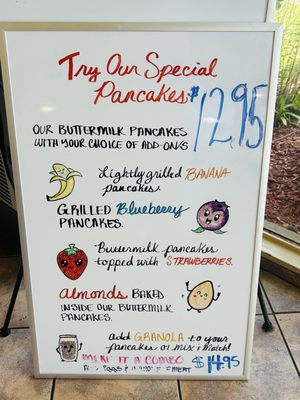 Try Our Special
Pancakes $12.95
OUR BUTTERMILK PANCAKES
WITH YOUR CHOICE OF ADD-ONS
Lightly grilled BANANA
pancakes
GRILLED Blueberry
PANCAKES.
Buttermilk pancakes
topped with STRAWBERRIES.
Almonds BAKED
INSIDE OUR BUTTERMILK
PANCAKES.
add GRANOLA to your
pancakes or mix & Match!
MAKE IT A COMBO $14.95
EGGS